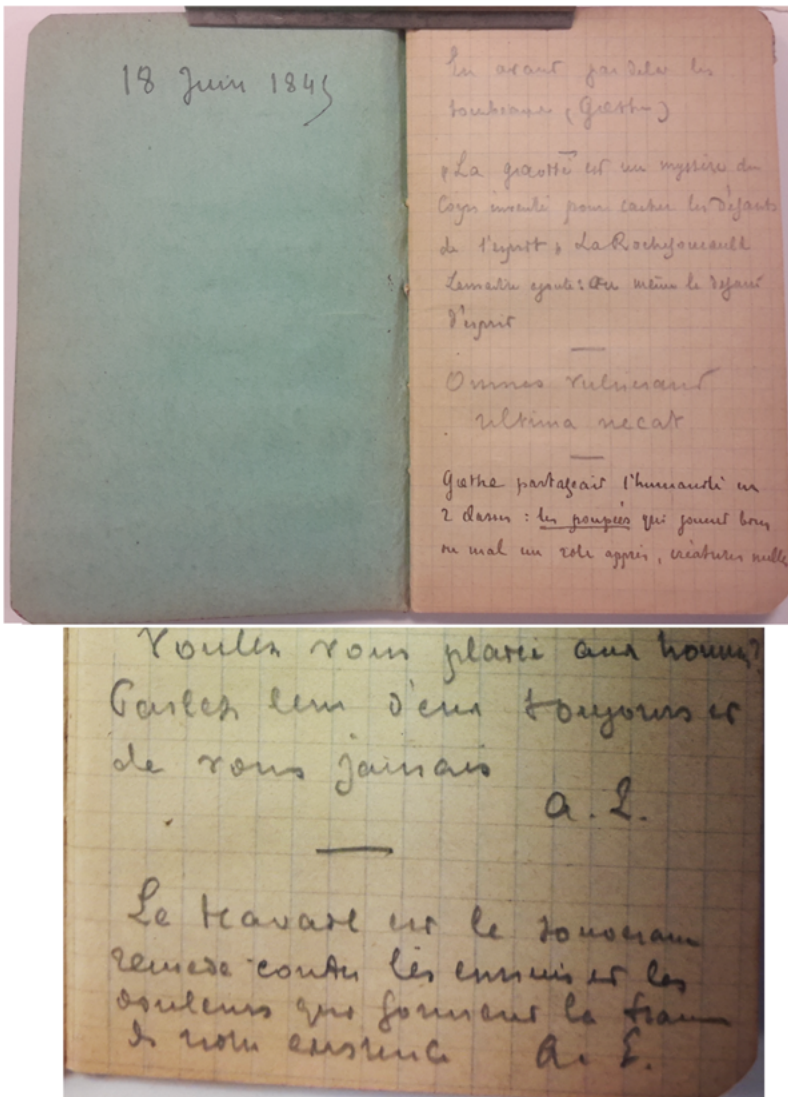 18 Juin 1845
En avant par dela les
tombeaux (Gœthe)
"La gravité est un mystère du
Corps inventé pour cacher les défauts
de l'esprit" La Rochefoucault
Lemaitre ajoute: ou même le défaut
d'esprit
Omnes vulnerant
ultima necat
Gœthe partageait l'humanité en
2 classes : les poupées qui jouent bien
ou mal un role appris, créatures nulles
Voulez vous plaire aux hommes?
Parlez leur d'eux toujours et
de vous jamais
a. L.
Le travail est le souverain
remede contre les ennuis et les
douleurs qui forment la trame
de notre existence a. L.